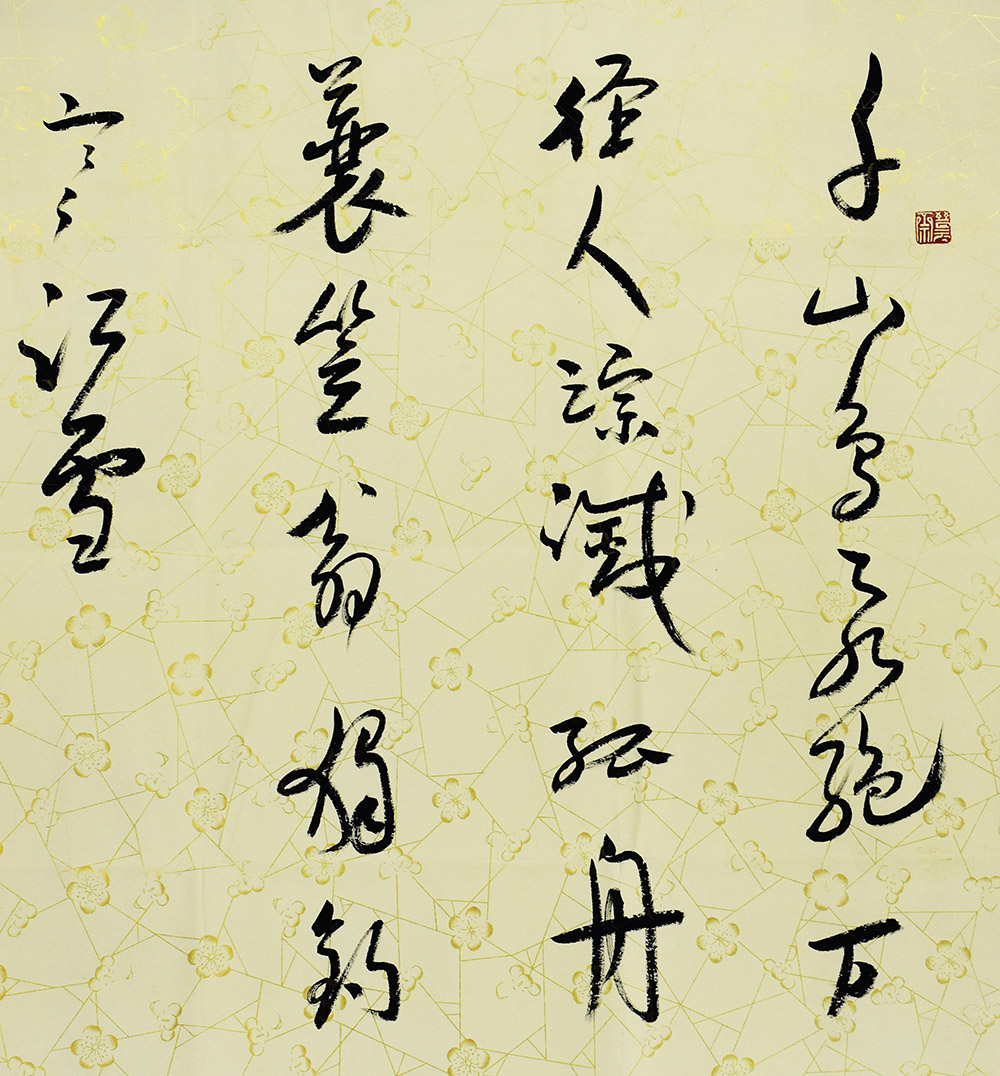 千山鳥飛絕万
径人踪滅孤舟
蓑笠翁獨釣
寒江雪